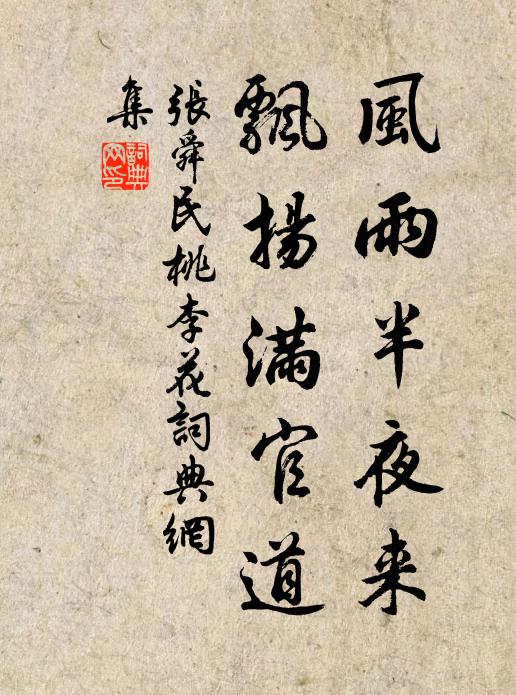 風雨半夜来
飄揚滿官道
張舜民桃李花詞典網
集
詞典網印